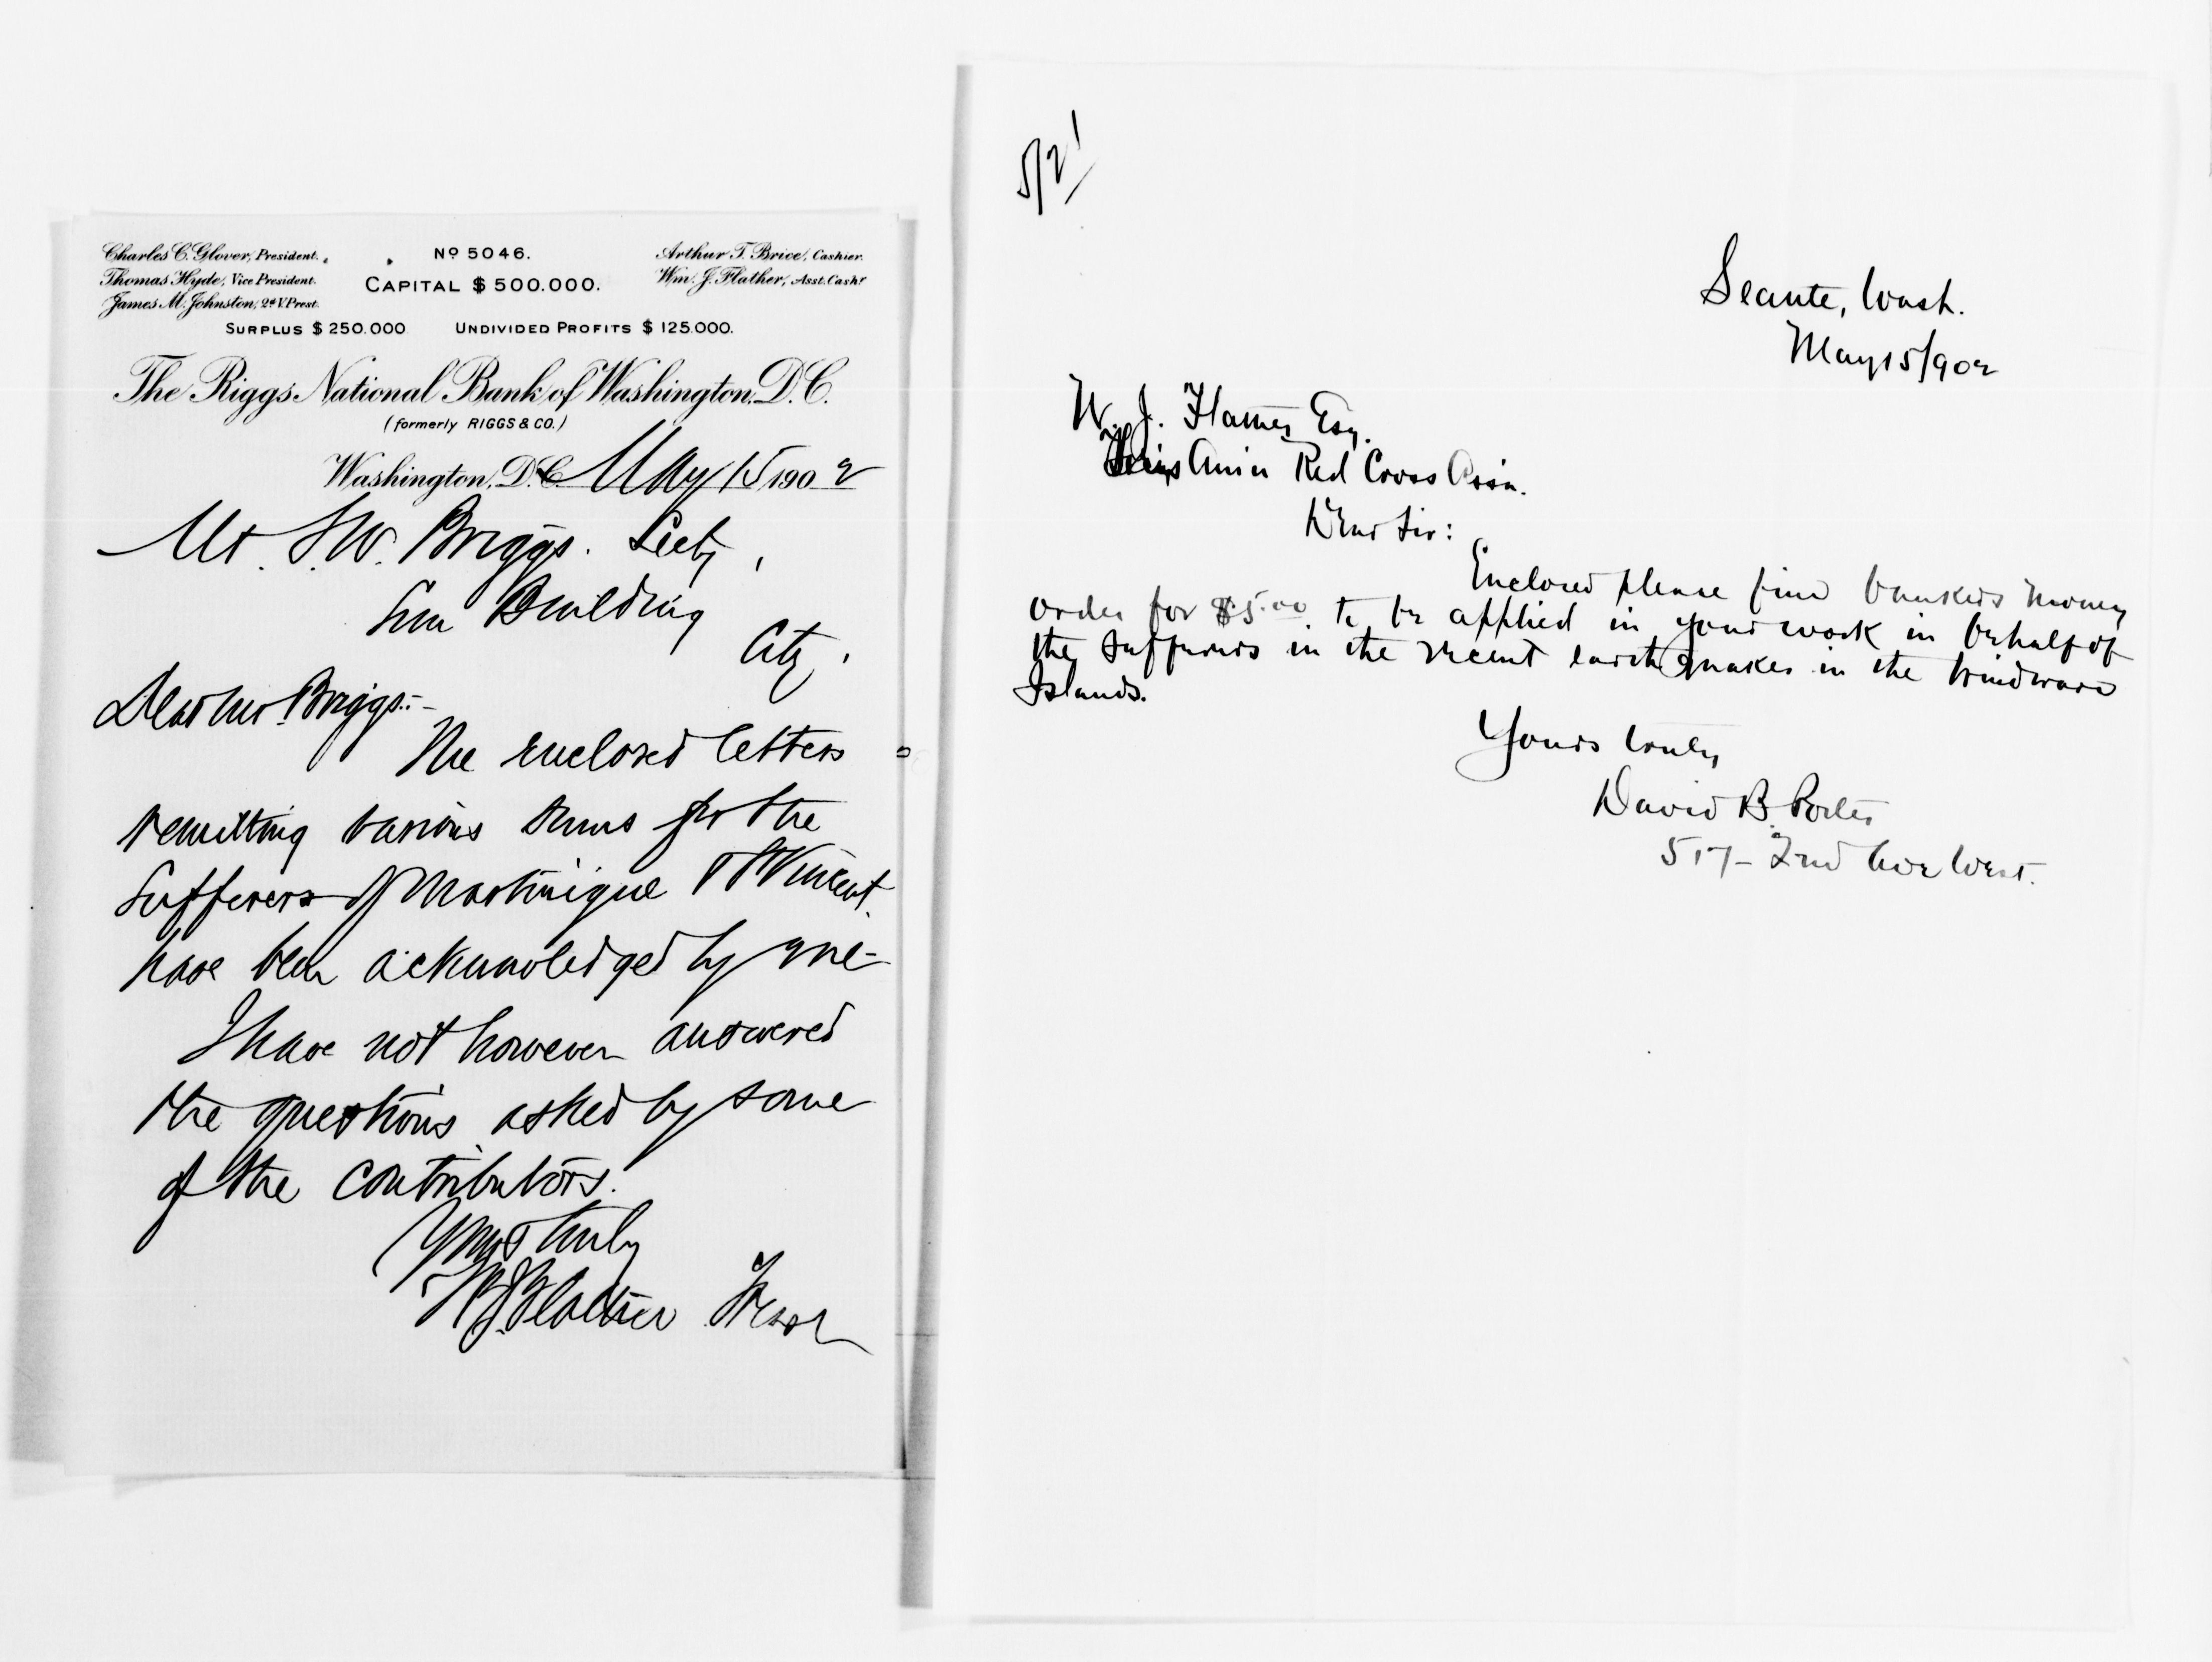 Charles C. Glover, President.
Thomas Hyde, Vice President.
James M. Johnston, 2d V. Prest.
No 5046.
CAPITAL $500.000.
Arthur T. Brice, Cashier.
Wm. J. Flather, Asst. Cashr
SURPLUS $250.000 UNDIVIDED PROFITS $125.000.
The Riggs National Bank of Washington, D.C.
(formerly RIGGS & CO.)
Washington, D.C. May 15 1902
Mr. S.W. Briggs. Secty,
Sun Building
City.
Dear Mr. Briggs:-
The enclosed letters
remitting various sums for the
sufferers of Martinique & St Vincent
have been acknowledged by me-
I have not however answered
the questions asked by some
of the contributors.
Yours truly
W J Flather Treasr
5/21
Seattle, Wash.
May 15/902
W. J. Flather, Esq.
Amer Red Cross Assn.
Dear Sir:
Enclosed please find bankers money
order for $5.00 to be applied in your work in behalf of
the sufferers in the recent earthquakes in the Windward
Islands.
Yours truly,
David B. Porter
517- 2nd Ave West.